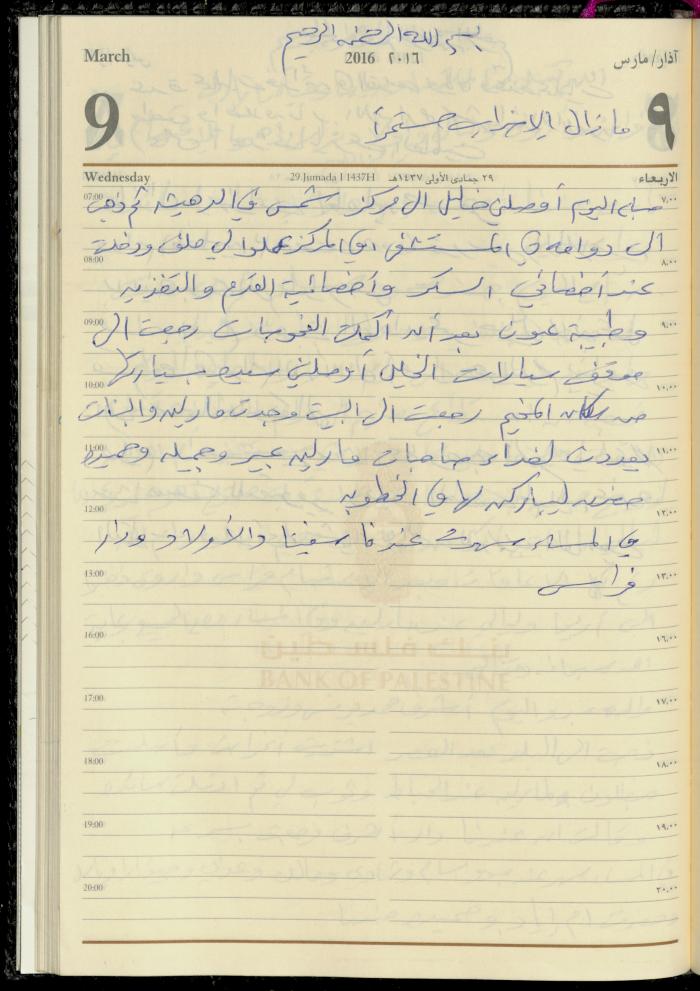 بسم الله الرحمن الرحيم
March
2016 ٢٠١٦
آذار/مارس
9
ما زال الاضراب مستمراً
٩
Wednesday
29 Jumada I 1437H
٢٩ جمادى الأولى ١٤٣٧هـ
الاربعاء
07:00 ٧,٠٠
صباح اليوم أوصلني خليل الى مركز شمس في الدهيشه ثم ذهب
الى دوامه في المستشفى في المركز عملوا لي ملف ودخلت
08:00 ٨,٠٠
عند أخصائي السكر وأخصائية القدم والتغذيه
09:00 ٩,٠٠
وطبيبة عيون بعد أن أكملت الفحوصات رجعت الى
موقف سيارات الخليل أوصلني بسيارته
10:00 ١٠,٠٠
من سكان المخيم رجعت الى البيت وجدت مارلين والبنات
11:00 ١١,٠٠
يعددن لغداء صاحبات مارلين عبير وجميله وحميده
حضرن ليباركن لها في الخطوبه
12:00 ١٢,٠٠
في المساء سهرت عندنا سفيتا والأولاد ودار
13:00 ١٣,٠٠
فراس
16:00 ١٦,٠٠
بنك فلسطين
BANK OF PALESTINE
17:00 ١٧,٠٠
18:00 ١٨,٠٠
19:00 ١٩,٠٠
20:00 ٢٠,٠٠